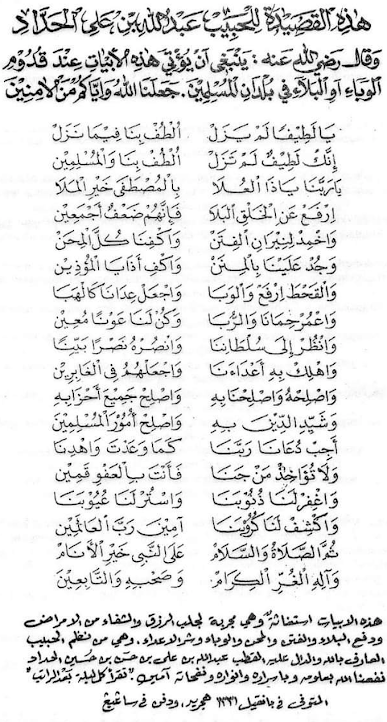 هذه القصيدة للحبيب عبدالله بن علي الحداد
وقال رضي الله عنه : ينبغي أن يؤتى هذه الأبيات عند قدوم
الوباء أو البلاء في بلدان المسلمين . جعلنا الله وإياكم من الآمنين
يا لطيفا لم يزل الطف بنا فيما نزل
إنك لطيف لم تزل الطف بنا والمسلمين
يا ربنا يا ذا العلا بالمصطفى خير الملا
ارفع عن الخلق البلا فإنهم ضعف أجمعين
واخمد لنيران الفتن واكفنا كل المحن
وجد علينا بالمنن واكف أذايا المؤذين
والقحط ارفع والوبا واجعل عدانا كالهبا
واعمر حمانا والربا وكن لنا عونا معين
وانظر إلى سلطاننا وانصره نصرا بينا
واهلك به أعداءنا واجعلهم في الغابرين
واصلحه واصلحنا به واصلح جميع أحزابه
وشيد الدين به واصلح أمور المسلمين
أجب دعانا ربنا كما وعدت واهدنا
ولا تؤاخذ من جنا فأنت بالعفو قمين
واغفر لنا ذنوبنا واستر لنا عيوبنا
واكشف لنا كروبنا آمين رب العالمين
ثم الصلاة والسلام على النبي خير الأنام
وآله الغر الكرام وصحبه والتابعين
هذه الابيات استغاثة وهي مجربة لجلب الرزق والشفاء من الامراض
ودفع البلاء والفتن والمحن والوباء وشر الاعداء ، وهي من نظم الحبيب
العارف بالله والدال عليه القطب عبدالله بن علي بن حسن بن حسين الحداد
نفعنا الله بعلومه وأسراره وأنواره ونفحاته آمين "تقرأ كل ليلة بعد الراتب"
المتوفى في بانقيل ١٣٣١ هجرية، ودفن في سانڬيڠ